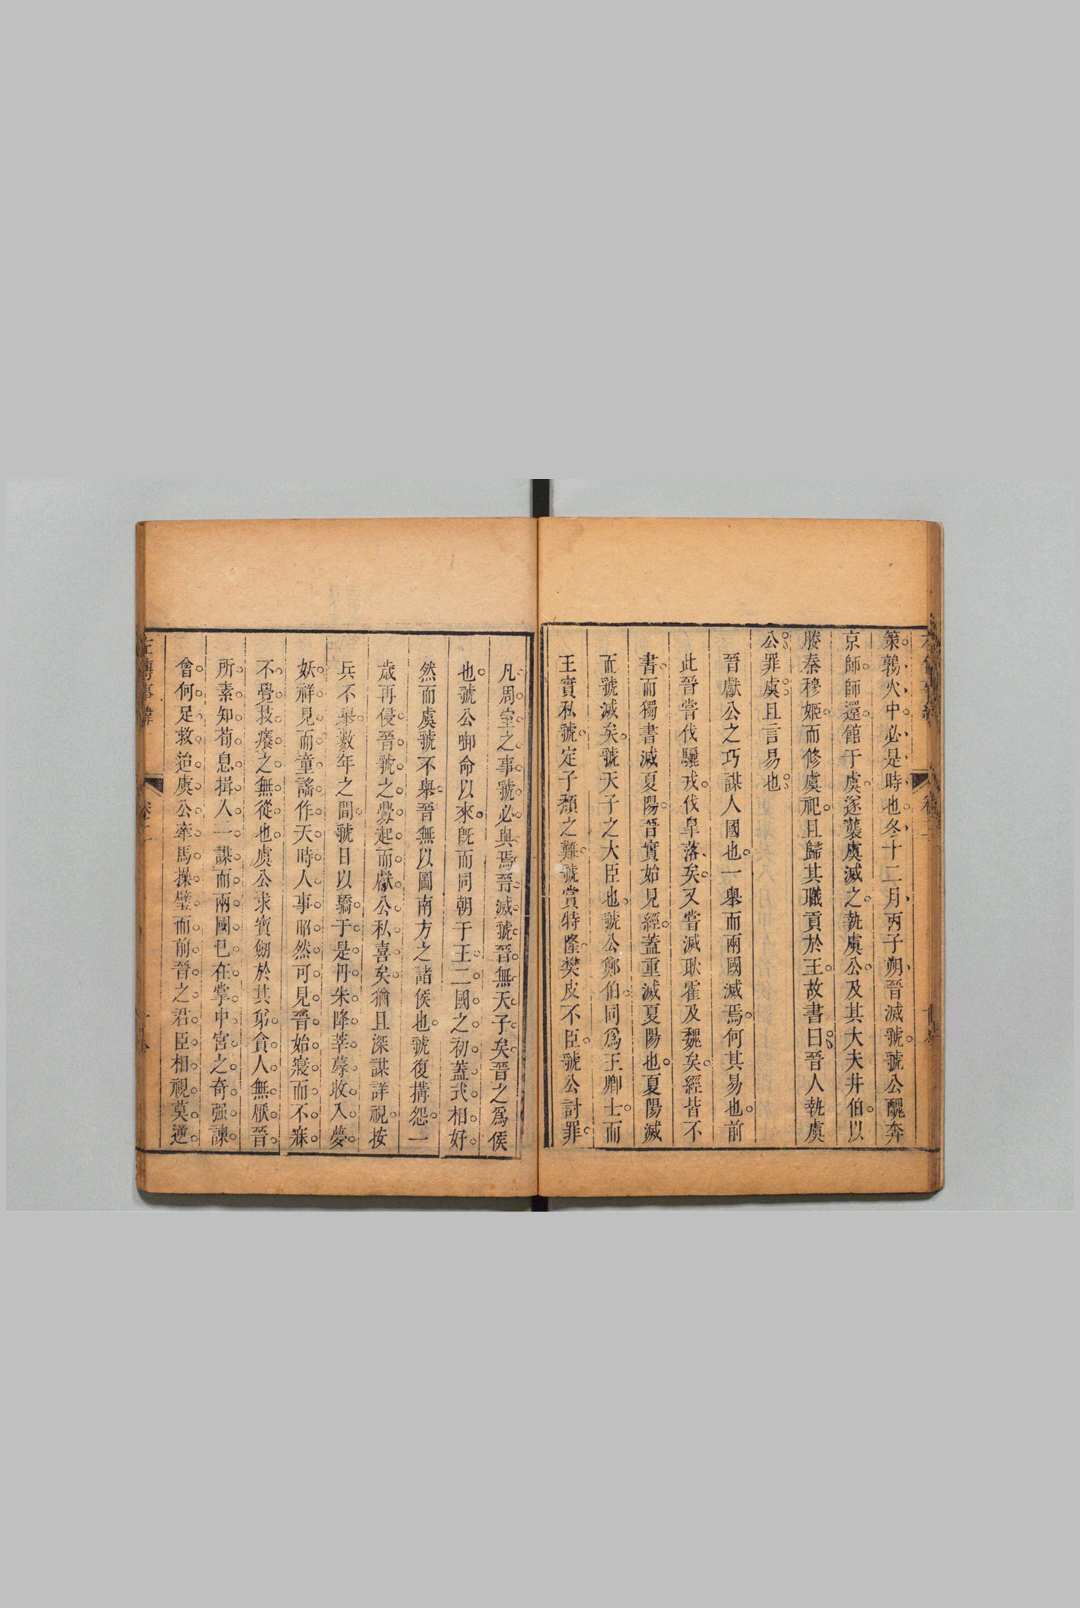 策鶉火中必是時也冬十二月丙子朔晉滅虢虢公醜奔
京師師還館于虞遂襲虞滅之執虞公及其大夫井伯以
媵秦穆姬而修虞祀且歸其職貢於王故書曰晉人執虞
公罪虞且言易也
晉獻公之巧謀人國也一舉而兩國滅焉何其易也前
此晉嘗伐驪戎伐皐落矣又嘗滅耿霍及魏矣經皆不
書而獨書滅夏陽晉實始見經蓋重滅夏陽也夏陽滅
而虢滅矣虢天子之大臣也虢公鄭伯同爲王卿士而
王實私虢定子頹之難虢賞特隆樊皮不臣虢公討罪
凡周室之事虢必與焉晉滅虢晉無天子矣晉之爲侯
也虢公啣命以來旣而同朝于王二國之初蓋式相好
然而虞虢不舉晉無以圖南方之諸侯也虢復搆怨一
歲再侵晉虢之釁起而獻公私喜矣猶且深謀詳視按
兵不舉數年之間虢日以驕于是丹朱降莘蓐收入夢
妖祥見而童謠作天時人事昭然可見晉始寢而不寐
不覺技癢之無從也虞公求寶劒於其弟貪人無厭晉
所素知荀息揖人一謀而兩國已在掌中宮之奇强諫
會何足救沿虞公牽馬操璧而前晉之君臣相視莫逆
左傳事緯
卷二